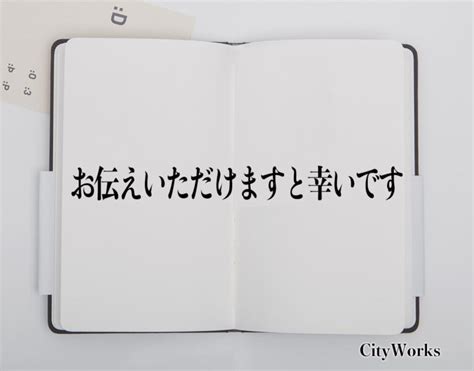 :D
:O :3
:P :P
お伝えいただけますと幸いです
CityWorks